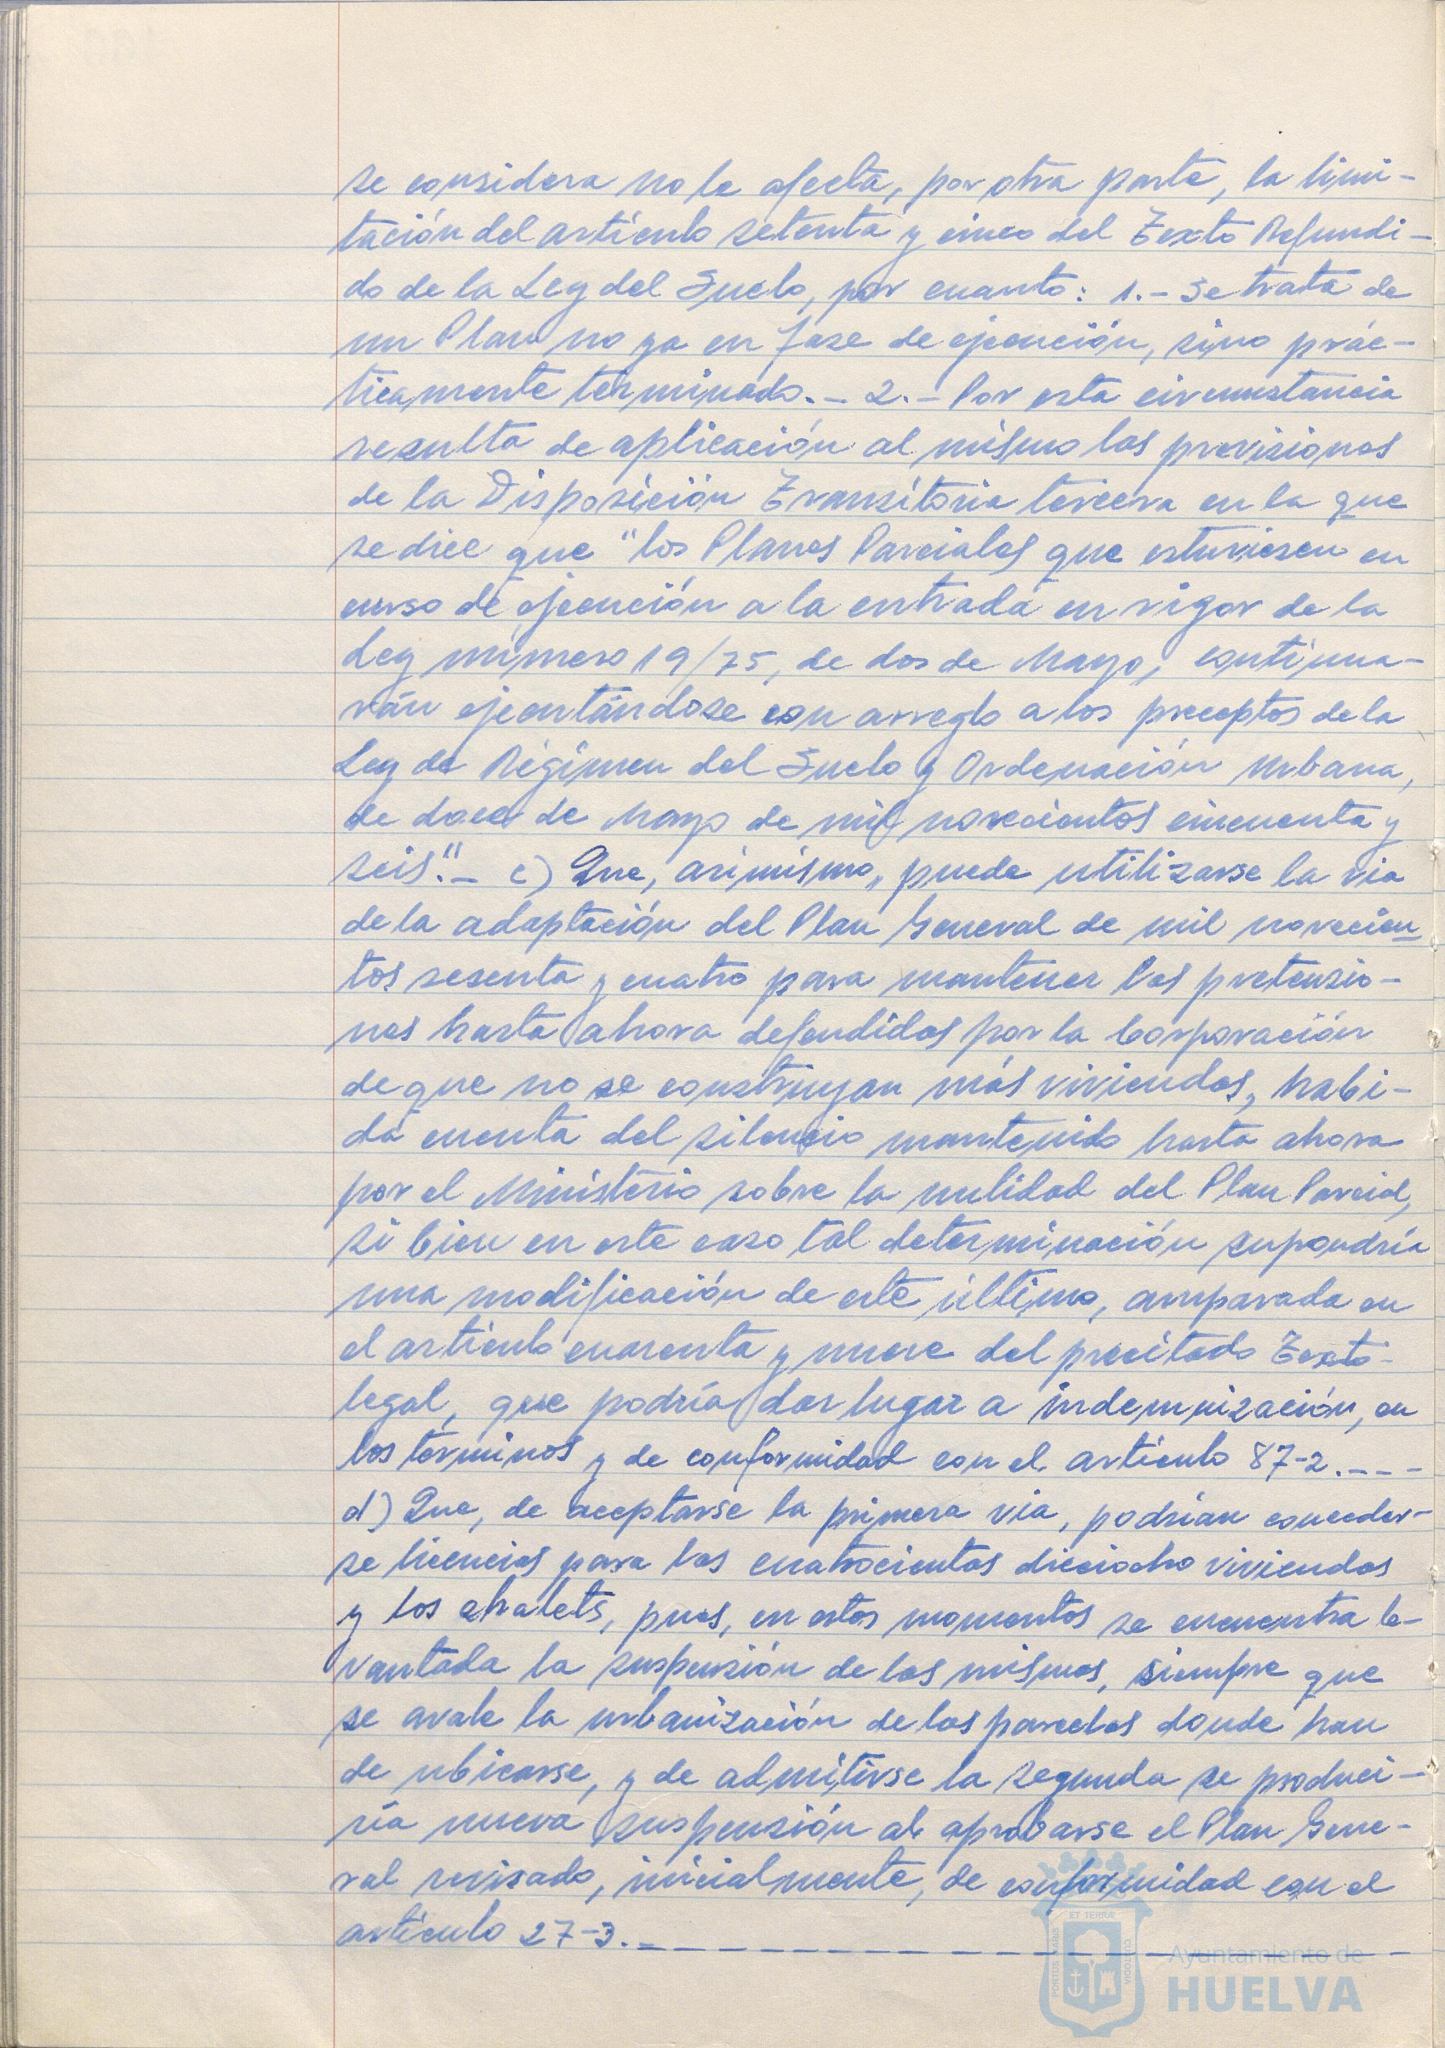 se considera no le afecta, por otra parte, la limi-
tación del artículo setenta y cinco del Texto Refundi-
do de la Ley del Suelo, por cuanto: 1.- Se trata de
un Plan no ya en fase de ejecución, sino prác-
ticamente terminado.- 2.- Por esta circunstancia
resulta de aplicación al mismo las previsiones
de la Disposición Transitoria tercera en la que
se dice que "los Planes Parciales que estuviesen en
curso de ejecución a la entrada en vigor de la
Ley número 19/75, de dos de Mayo, continua-
rán ejecutándose con arreglo a los preceptos de la
Ley de Régimen del Suelo y Ordenación Urbana,
de doce de Mayo de mil novecientos cincuenta y
seis".- c) Que, asimismo, puede utilizarse la vía
de la adaptación del Plan General de mil novecien-
tos sesenta y cuatro para mantener las pretensio-
nes hasta ahora defendidas por la Corporación
de que no se construyan más viviendas, habi-
da cuenta del silencio mantenido hasta ahora
por el Ministerio sobre la nulidad del Plan Parcial,
si bien en este caso tal determinación supondría
una modificación de este último, amparada en
el artículo cuarenta y nueve del precitado Texto
legal, que podría dar lugar a indemnización, en
los términos y de conformidad con el artículo 87-2.---
d) Que, de aceptarse la primera vía, podrían conceder-
se licencias para las cuatrocientas dieciocho viviendas
y los chalets, pues, en estos momentos se encuentra le-
vantada la suspensión de las mismas, siempre que
se avale la urbanización de las parcelas donde han
de ubicarse, y de admitirse la segunda se produci-
ría nueva suspensión al aprobarse el Plan Gene-
ral revisado, inicialmente, de conformidad con el
artículo 27-3.-
PORTUS MARIS ET TERRAE CUSTODIA
Ayuntamiento de
HUELVA